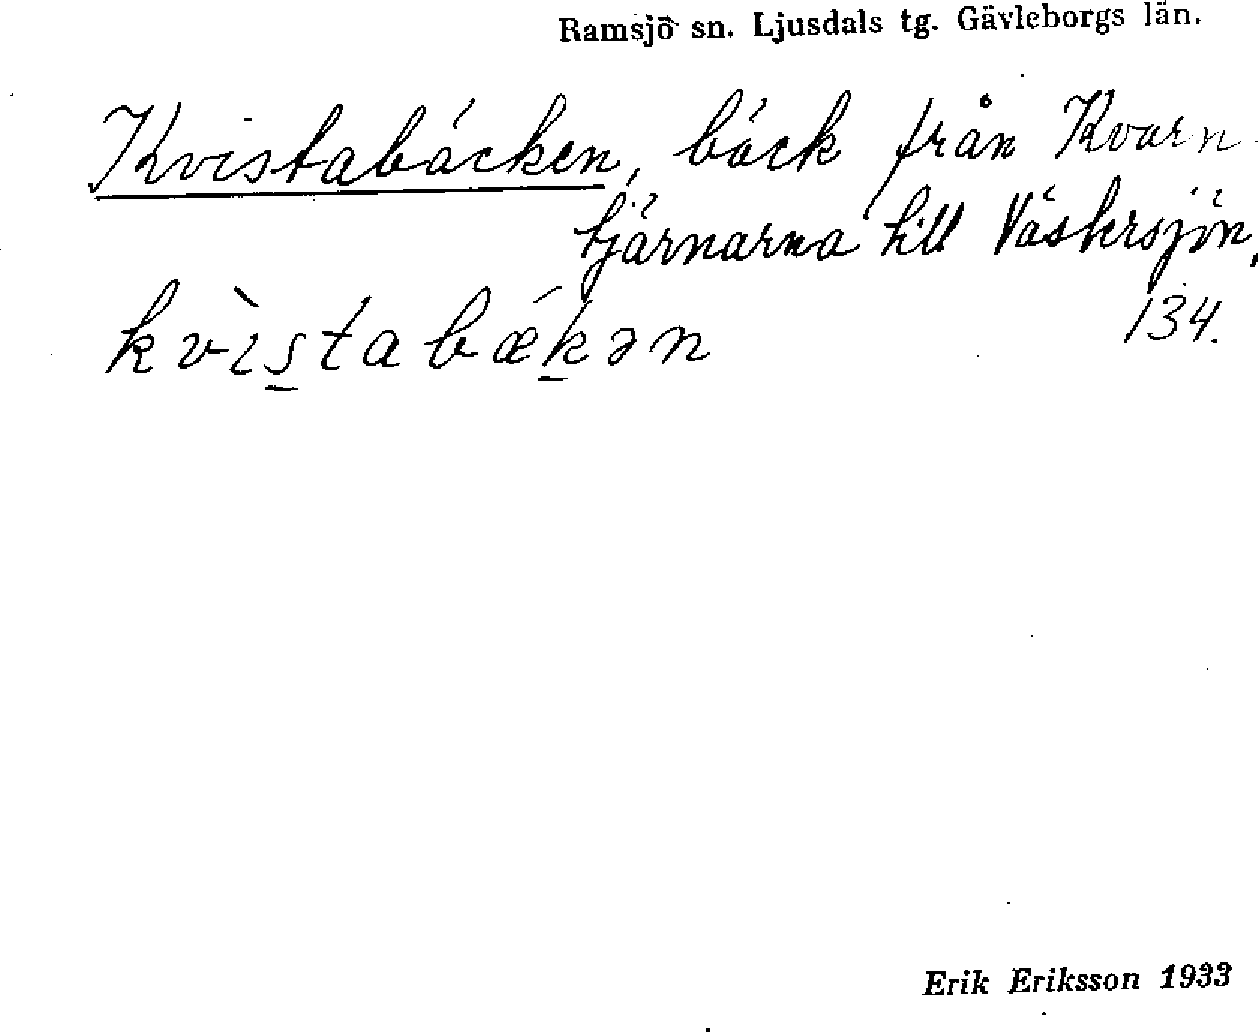 Ramsjö sn. Ljusdals tg. Gävleborgs län.
Kvistabäcken, bäck från Kvarn-
tjärnarna till Västersjön,
134.
kvìs̲tabǽk̲ən
Erik Eriksson 1933